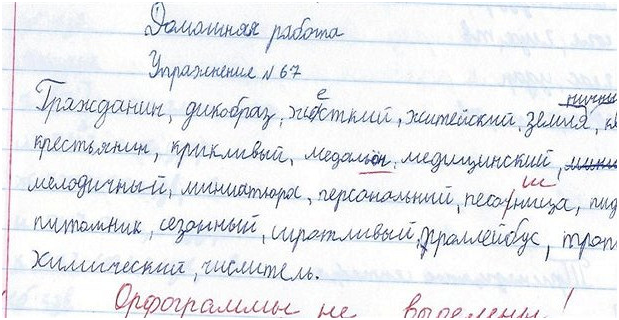 Домашняя работа
Упражнение №67
Гражданин, дикобраз, жесткий, житейский, земля,
крестьянин, крикливый, медальон, медицинский,
мелодичный, миниатюра, персональный, песочница,
питомник, сезонный, сиротливый, троллейбус,
химический, числитель.
Орфограммы не выделены!